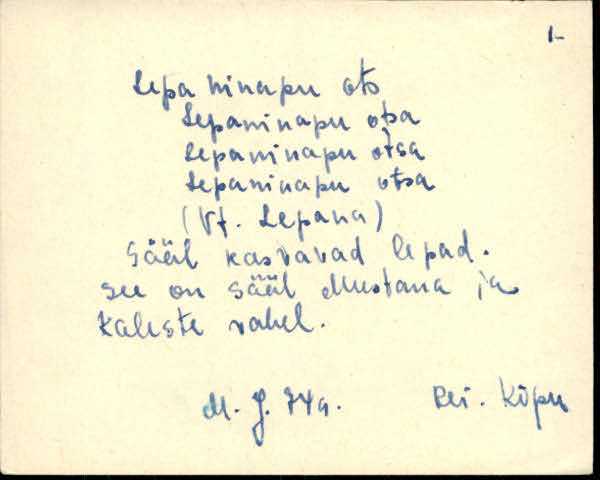 1-
Lepaninapu ots
Lepaninapu otsa
Lepaninapu otsa
Lepaninapu otsa
(Vt. Lepana)
Sääl kasvavad lepad.
see on sääl Mustana ja
Kaleste vahel.
M. J. 74a. Rei. Kõpu